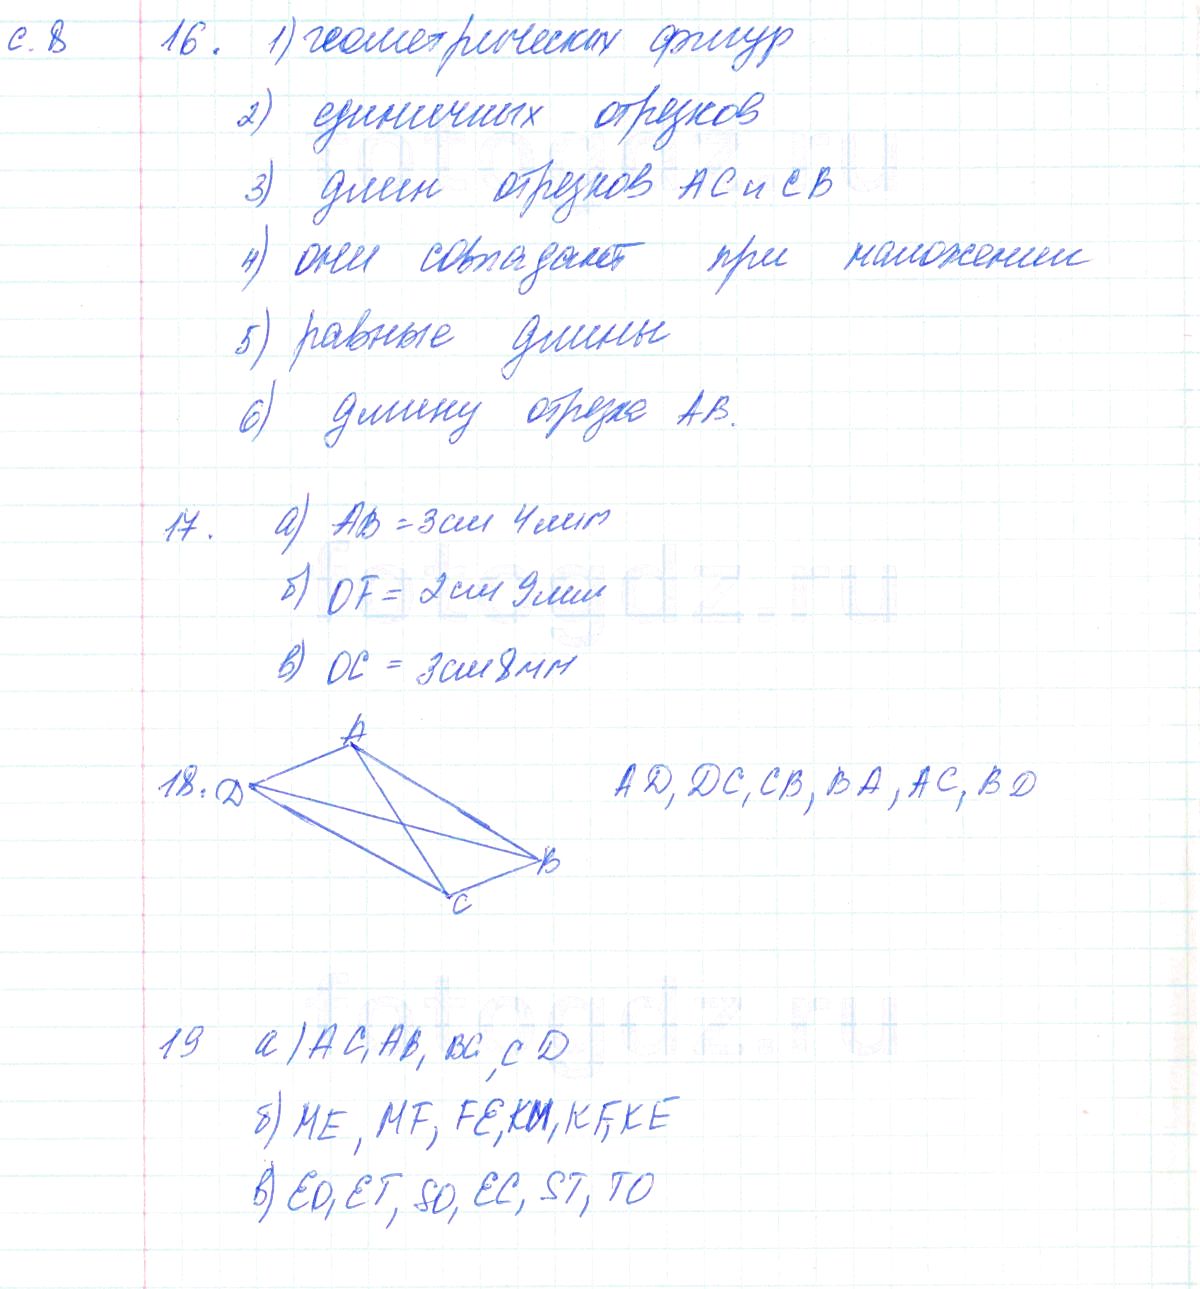 с. 8 16. 1) геометрических фигур
2) единичных отрезков
3) длин отрезков AC и CB
4) они совпадают при наложении
5) равные длины
6) длину отрезка AB.
17. а) AB = 3см 4мм
б) OF = 2см 9мм
в) OC = 3см 8мм
A
18. D AD, DC, CB, BA, AC, BD
B
C
19 а) AC, AB, BC, CD
б) ME, MF, FE, KM, KF, KE
в) EO, ET, SO, EC, ST, TO
fotogdz.ru
fotogdz.ru
fotogdz.ru